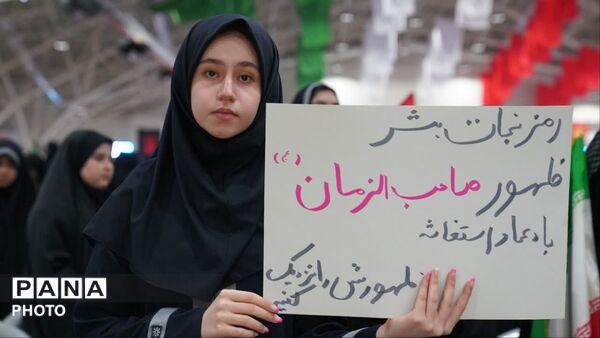 رمز نجات بشر
ظهور صاحب الزمان (ع)
با دعا و استغاثه
ظهورش را نزدیک
کنیم
PANA
PHOTO